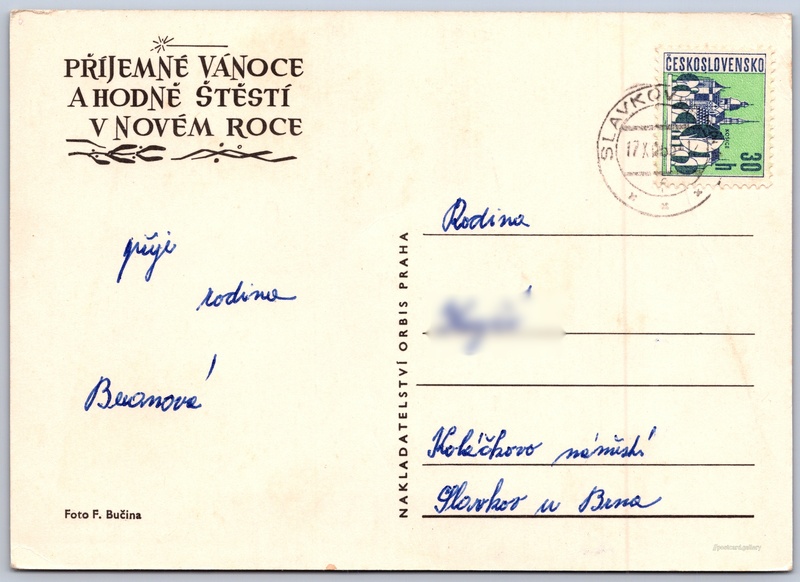 PŘÍJEMNÉ VÁNOCE
A HODNĚ ŠTĚSTÍ
V NOVÉM ROCE
přeje
rodina
Beranová
Foto F. Bučina
NAKLADATELSTVÍ ORBIS PRAHA
ČESKOSLOVENSKO
30 h
SLAVKOV
Rodina
Koláčkovo náměstí
Slavkov u Brna